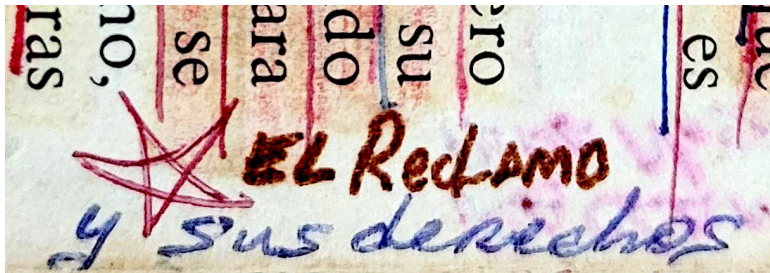 ras
no,
se
ara
do
su
ero
es
EL RecLAMO
y sus derechos